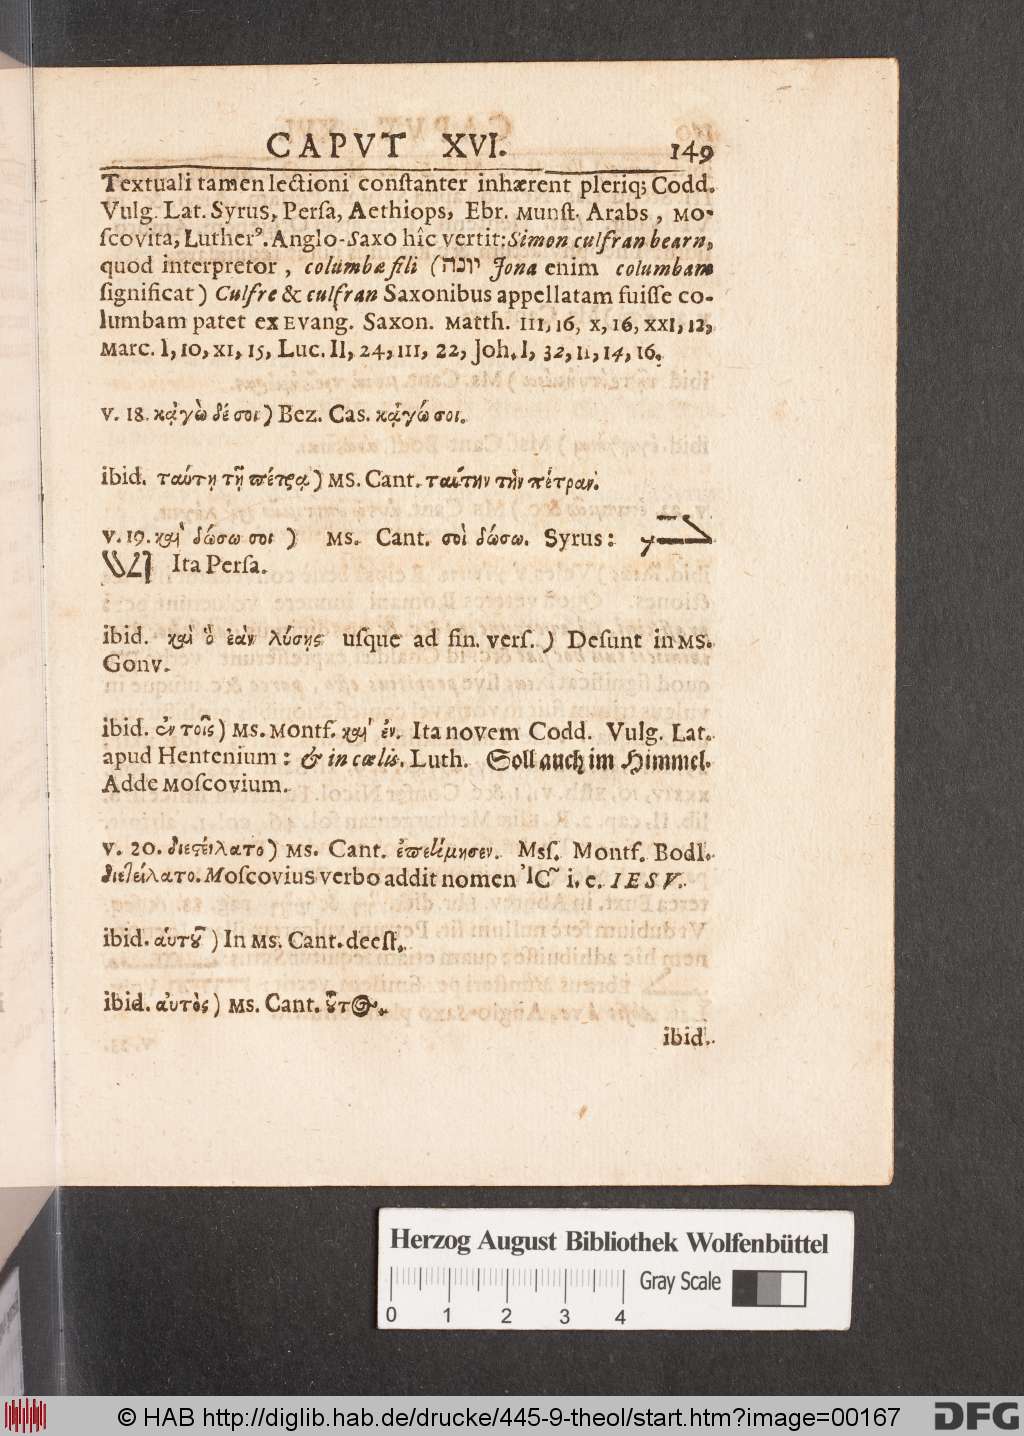 CAPVT XVI. 149
Textuali tamen lectioni constanter inhærent pleriq; Codd.
Vulg. Lat. Syrus, Persa, Aethiops, Ebr. Munst. Arabs, Mo-
scovita, Lutherꝰ. Anglo-Saxo hîc vertit: Simon culfran bearn,
quod interpretor, columbæ fili (יונה Jona enim columbam
significat) Culfre & culfran Saxonibus appellatam fuisse co-
lumbam patet ex Evang. Saxon. Matth. III, 16, X, 16, XXI, 12,
Marc. I, 10, XI, 15, Luc. II, 24, III, 22, Joh. I, 32, II, 14, 16.
v. 18. κᾀγὼ δέ σοι) Bez. Cas. κᾀγώ σοι.
ibid. ταύτῃ τῇ πέτρᾳ) MS. Cant. ταύτην τὴν πέτραν.
v. 19. καὶ δώσω σοι) MS. Cant. σοὶ δώσω. Syrus:
Ita Persa.
ibid. καὶ ὃ ἐὰν λύσῃς usque ad fin. vers.) Desunt in MS.
Gonv.
ibid. ἐν τοῖς) MS. Montf. καὶ ἐν. Ita novem Codd. Vulg. Lat.
apud Hentenium: & in cælis. Luth. Soll auch im Himmel.
Adde Moscovium.
v. 20. διεστείλατο) MS. Cant. ἐπετίμησεν. Mss. Montf. Bodl.
διετείλατο. Moscovius verbo addit nomen ἸC~ i. e. IESV.
ibid. αὑτοῦ) In MS. Cant. deest.
ibid. αὐτὸς) MS. Cant. οὗτος.
ibid.
Herzog August Bibliothek Wolfenbüttel
Gray Scale
0 1 2 3 4
© HAB http://diglib.hab.de/drucke/445-9-theol/start.htm?image=00167 DFG